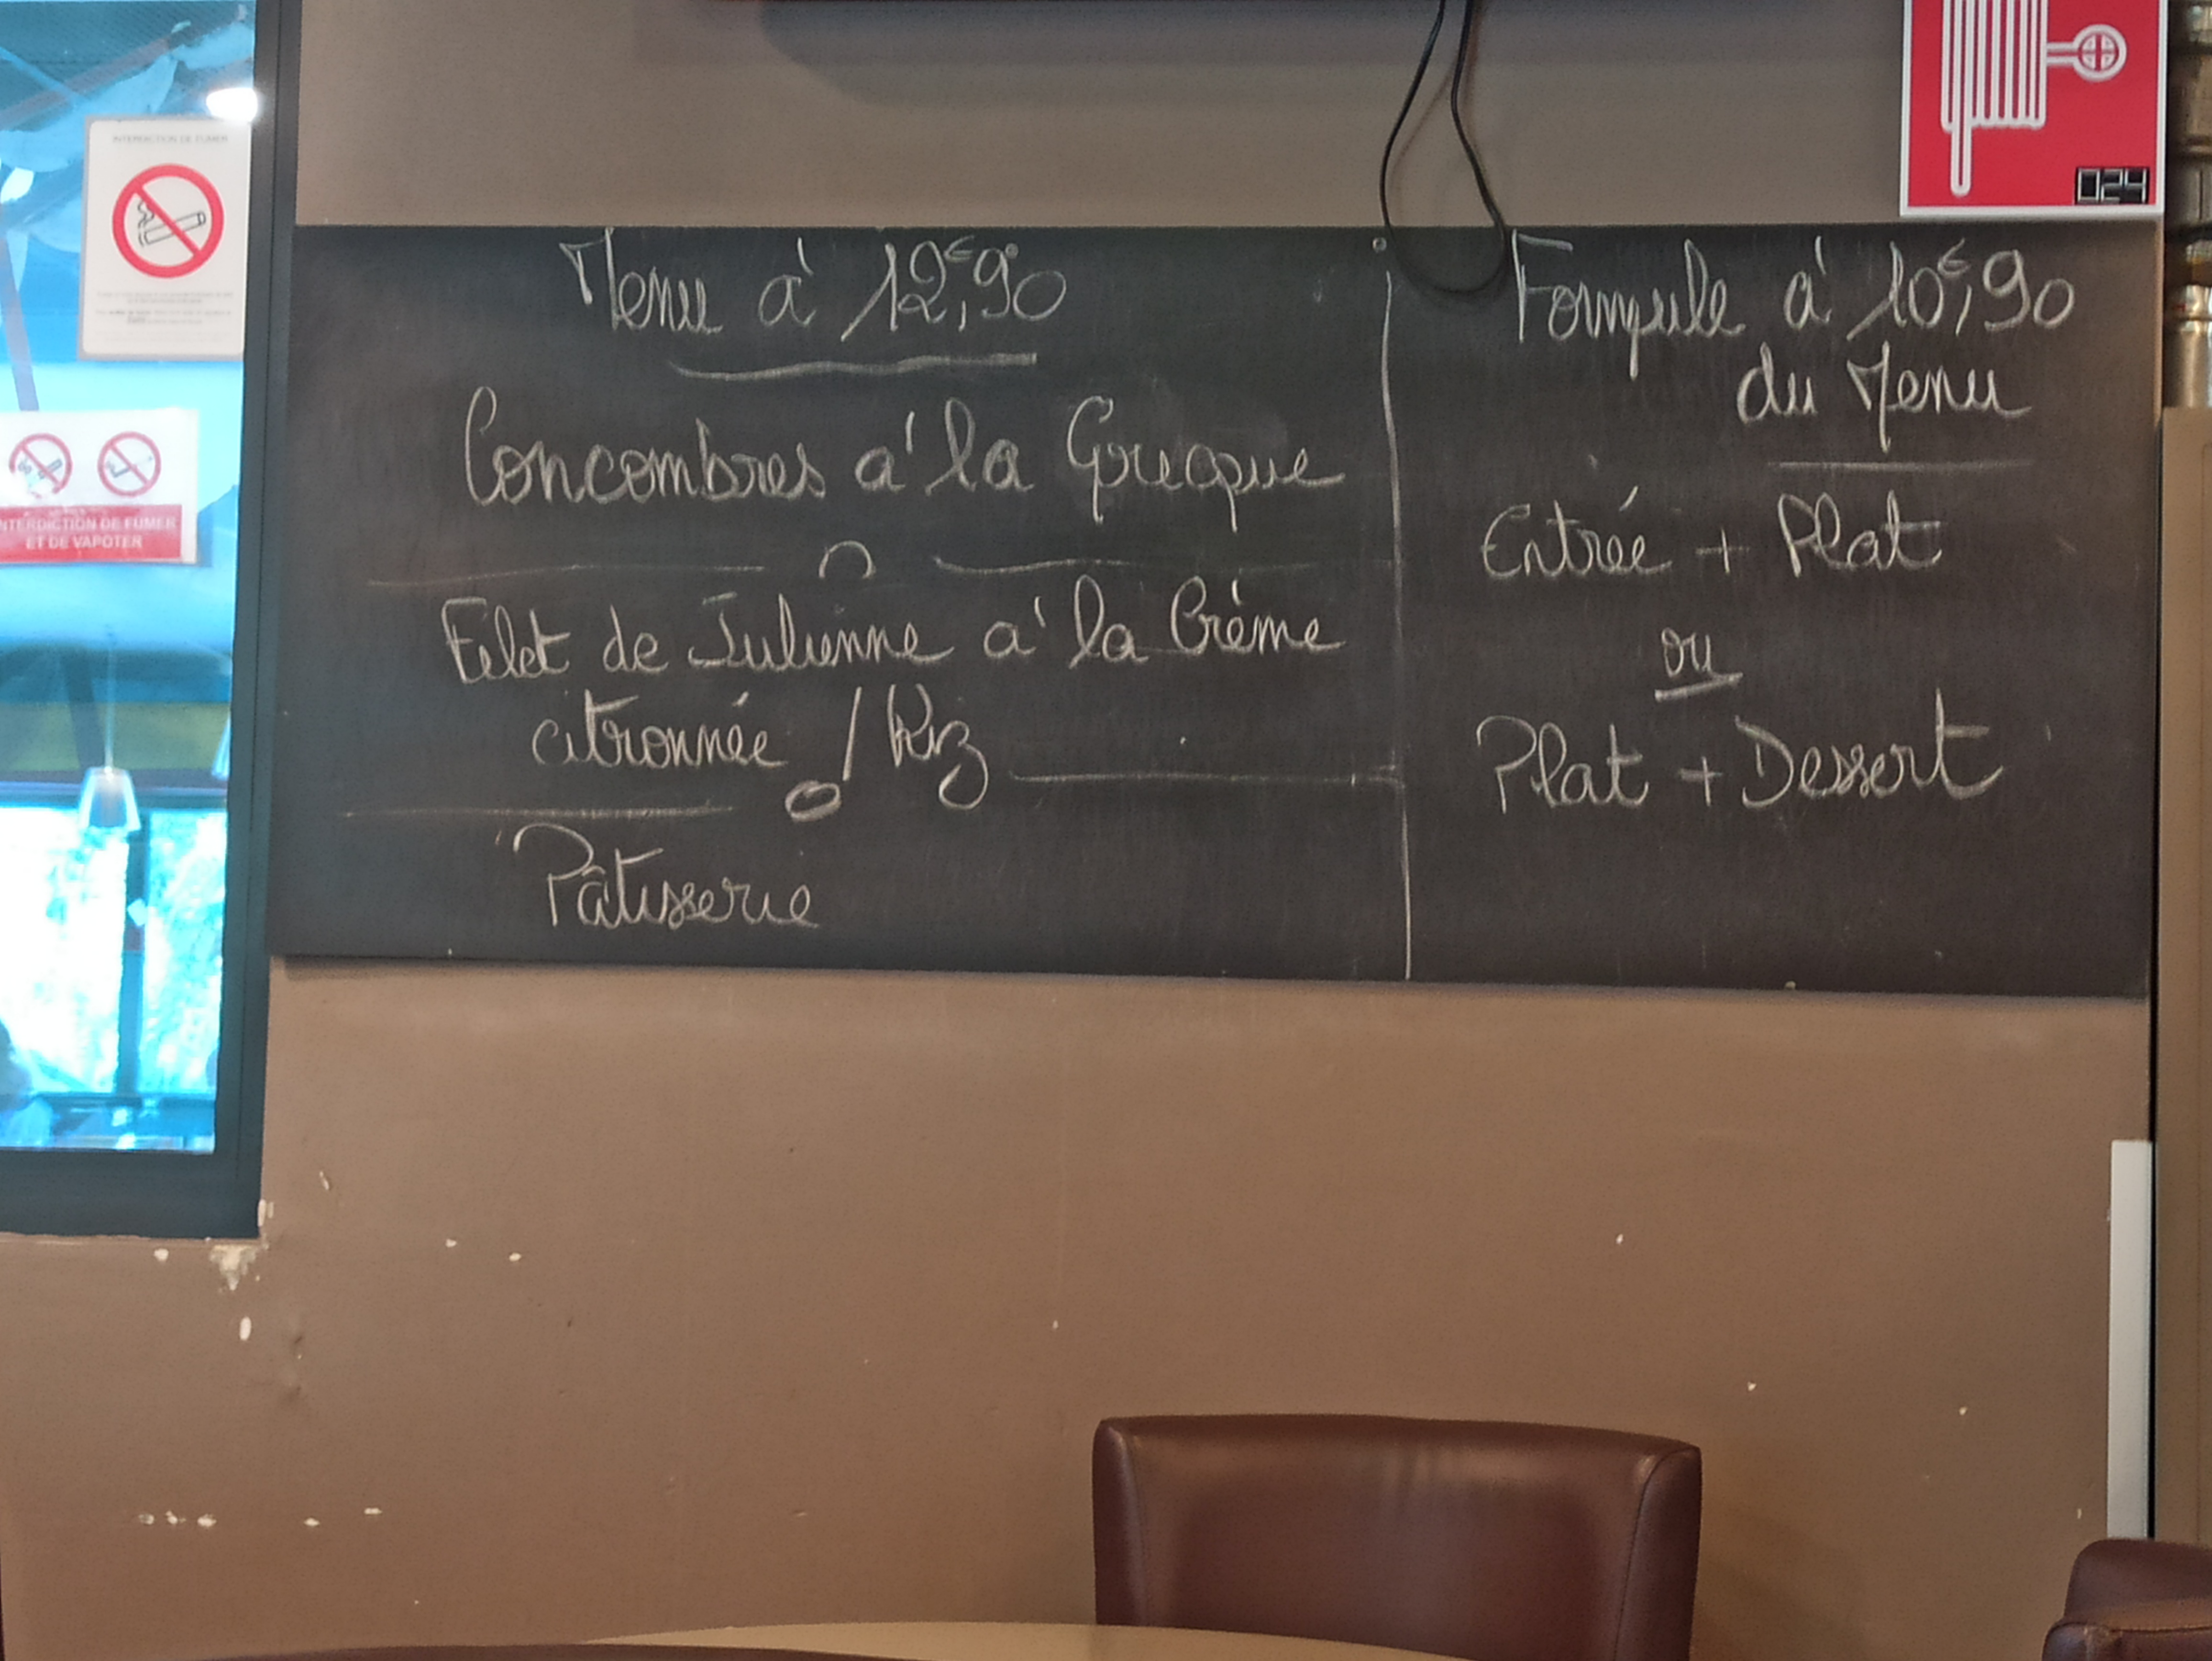 INTERDICTION DE FUMER
INTERDICTION DE FUMER
ET DE VAPOTER
Menu à 12,€90
Concombres à la Grecque
Filet de Julienne à la Crème
citronnée / Riz
Pâtisserie
Formule à 10€,90
du Menu
Entrée + Plat
ou
Plat + Dessert
024